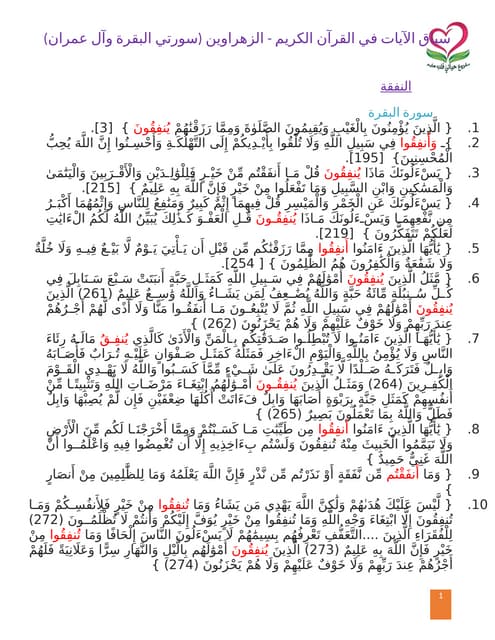 سياق الآيات في القرآن الكريم - الزهراوين (سورتي البقرة وآل عمران)
النفقة
سورة البقرة
1. { الَّذِينَ يُؤْمِنُونَ بِالْغَيْبِ وَيُقِيمُونَ الصَّلَوٰةَ وَمِمَّا رَزَقْنَٰهُمْ يُنفِقُونَ } [3].
2. }ـ وَأَنفِقُوا فِي سَبِيلِ اللَّهِ وَلَا تُلْقُوا بِأَيْدِيكُمْ إِلَى التَّهْلُكَةِ وَأَحْسِنُوا إِنَّ اللَّهَ يُحِبُّ
الْمُحْسِنِينَ} [195].
3. { يَسْـَٔلُونَكَ مَاذَا يُنفِقُونَ قُلْ مَا أَنفَقْتُم مِّنْ خَيْرٍ فَلِلْوَٰلِدَيْنِ وَالْأَقْرَبِينَ وَالْيَتَٰمَىٰ
وَالْمَسَٰكِينِ وَابْنِ السَّبِيلِ وَمَا تَفْعَلُوا مِنْ خَيْرٍ فَإِنَّ اللَّهَ بِهِ عَلِيمٌ } [215].
4. { يَسْـَٔلُونَكَ عَنِ الْخَمْرِ وَالْمَيْسِرِ قُلْ فِيهِمَا إِثْمٌ كَبِيرٌ وَمَنَٰفِعُ لِلنَّاسِ وَإِثْمُهُمَا أَكْبَرُ
مِن نَّفْعِهِمَا وَيَسْـَٔلُونَكَ مَاذَا يُنفِقُونَ قُلِ الْعَفْوَ كَذَٰلِكَ يُبَيِّنُ اللَّهُ لَكُمُ الْءَايَٰتِ
لَعَلَّكُمْ تَتَفَكَّرُونَ } [219].
5. { يَٰٓأَيُّهَا الَّذِينَ ءَامَنُوا أَنفِقُوا مِمَّا رَزَقْنَٰكُم مِّن قَبْلِ أَن يَأْتِيَ يَوْمٌ لَّا بَيْعٌ فِيهِ وَلَا خُلَّةٌ
وَلَا شَفَٰعَةٌ وَالْكَٰفِرُونَ هُمُ الظَّٰلِمُونَ } [ 254].
6. { مَّثَلُ الَّذِينَ يُنفِقُونَ أَمْوَٰلَهُمْ فِي سَبِيلِ اللَّهِ كَمَثَلِ حَبَّةٍ أَنبَتَتْ سَبْعَ سَنَابِلَ فِي
كُلِّ سُنبُلَةٍ مِّائَةُ حَبَّةٍ وَاللَّهُ يُضَٰعِفُ لِمَن يَشَاءُ وَاللَّهُ وَٰسِعٌ عَلِيمٌ (261) الَّذِينَ
يُنفِقُونَ أَمْوَٰلَهُمْ فِي سَبِيلِ اللَّهِ ثُمَّ لَا يُتْبِعُونَ مَا أَنفَقُوا مَنًّا وَلَا أَذًى لَّهُمْ أَجْرُهُمْ
عِندَ رَبِّهِمْ وَلَا خَوْفٌ عَلَيْهِمْ وَلَا هُمْ يَحْزَنُونَ (262) }
7. { يَٰٓأَيُّهَا الَّذِينَ ءَامَنُوا لَا تُبْطِلُوا صَدَقَٰتِكُم بِالْمَنِّ وَالْأَذَىٰ كَالَّذِي يُنفِقُ مَالَهُ رِئَاءَ
النَّاسِ وَلَا يُؤْمِنُ بِاللَّهِ وَالْيَوْمِ الْءَاخِرِ فَمَثَلُهُ كَمَثَلِ صَفْوَانٍ عَلَيْهِ تُرَابٌ فَأَصَابَهُ
وَابِلٌ فَتَرَكَهُ صَلْدًا لَّا يَقْدِرُونَ عَلَىٰ شَيْءٍ مِّمَّا كَسَبُوا وَاللَّهُ لَا يَهْدِي الْقَوْمَ
الْكَٰفِرِينَ (264) وَمَثَلُ الَّذِينَ يُنفِقُونَ أَمْوَٰلَهُمُ ابْتِغَاءَ مَرْضَاتِ اللَّهِ وَتَثْبِيتًا مِّنْ
أَنفُسِهِمْ كَمَثَلِ جَنَّةٍ بِرَبْوَةٍ أَصَابَهَا وَابِلٌ فَـَٔاتَتْ أُكُلَهَا ضِعْفَيْنِ فَإِن لَّمْ يُصِبْهَا وَابِلٌ
فَطَلٌّ وَاللَّهُ بِمَا تَعْمَلُونَ بَصِيرٌ (265) }
8. { يَٰٓأَيُّهَا الَّذِينَ ءَامَنُوا أَنفِقُوا مِن طَيِّبَٰتِ مَا كَسَبْتُمْ وَمِمَّا أَخْرَجْنَا لَكُم مِّنَ الْأَرْضِ
وَلَا تَيَمَّمُوا الْخَبِيثَ مِنْهُ تُنفِقُونَ وَلَسْتُم بِـَٔاخِذِيهِ إِلَّا أَن تُغْمِضُوا فِيهِ وَاعْلَمُوا أَنَّ
اللَّهَ غَنِيٌّ حَمِيدٌ }
9. { وَمَا أَنفَقْتُم مِّن نَّفَقَةٍ أَوْ نَذَرْتُم مِّن نَّذْرٍ فَإِنَّ اللَّهَ يَعْلَمُهُ وَمَا لِلظَّٰلِمِينَ مِنْ أَنصَارٍ
}
10. { لَّيْسَ عَلَيْكَ هُدَىٰهُمْ وَلَٰكِنَّ اللَّهَ يَهْدِي مَن يَشَاءُ وَمَا تُنفِقُوا مِنْ خَيْرٍ فَلِأَنفُسِكُمْ وَمَا
تُنفِقُونَ إِلَّا ابْتِغَاءَ وَجْهِ اللَّهِ وَمَا تُنفِقُوا مِنْ خَيْرٍ يُوَفَّ إِلَيْكُمْ وَأَنتُمْ لَا تُظْلَمُونَ (272)
لِلْفُقَرَاءِ الَّذِينَ ....التَّعَفُّفِ تَعْرِفُهُم بِسِيمَٰهُمْ لَا يَسْـَٔلُونَ النَّاسَ إِلْحَافًا وَمَا تُنفِقُوا مِنْ
خَيْرٍ فَإِنَّ اللَّهَ بِهِ عَلِيمٌ (273) الَّذِينَ يُنفِقُونَ أَمْوَٰلَهُم بِالَّيْلِ وَالنَّهَارِ سِرًّا وَعَلَانِيَةً فَلَهُمْ
أَجْرُهُمْ عِندَ رَبِّهِمْ وَلَا خَوْفٌ عَلَيْهِمْ وَلَا هُمْ يَحْزَنُونَ (274) }
1